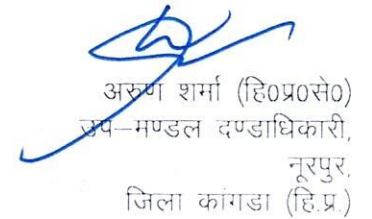 अरुण शर्मा (हि0प्र0से0)
उप–मण्डल दण्डाधिकारी,
नूरपुर,
जिला कांगडा (हि.प्र.)